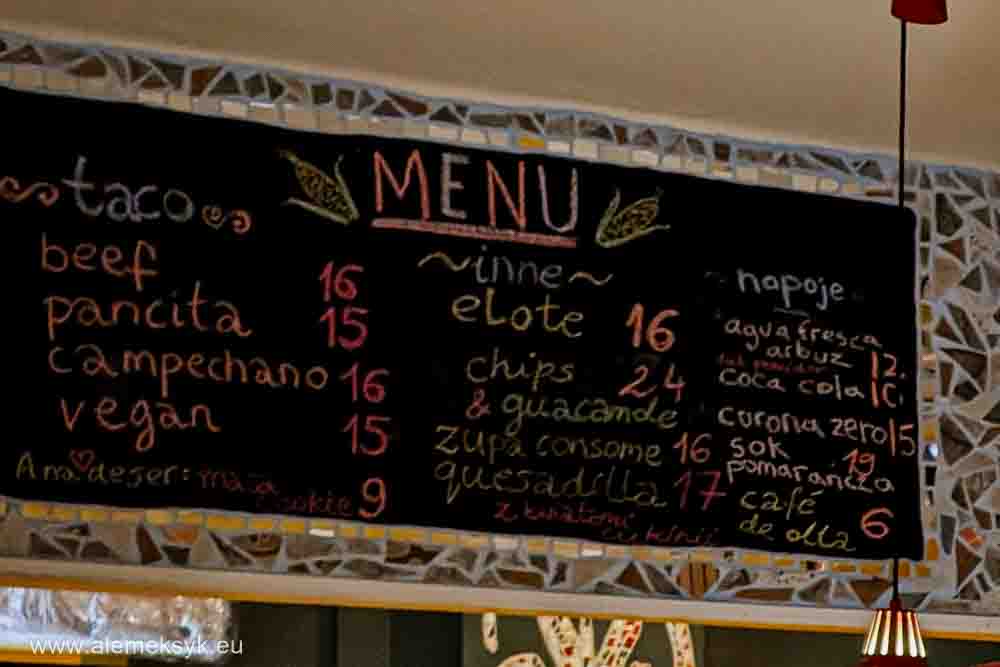 MENU
taco
beef 16
pancita 15
campechano 16
vegan 15
A na deser: masa 9
~inne~
eLote 16
chips 24
& guacamole
zupa consome 16
quesadilla 17
z kwiatami
cukinii
napoje
agua fresca
arbuz 12.
coca cola
corona zero 15
sok 19
pomarańcza
café
de olla 6
www.alemeksyk.eu